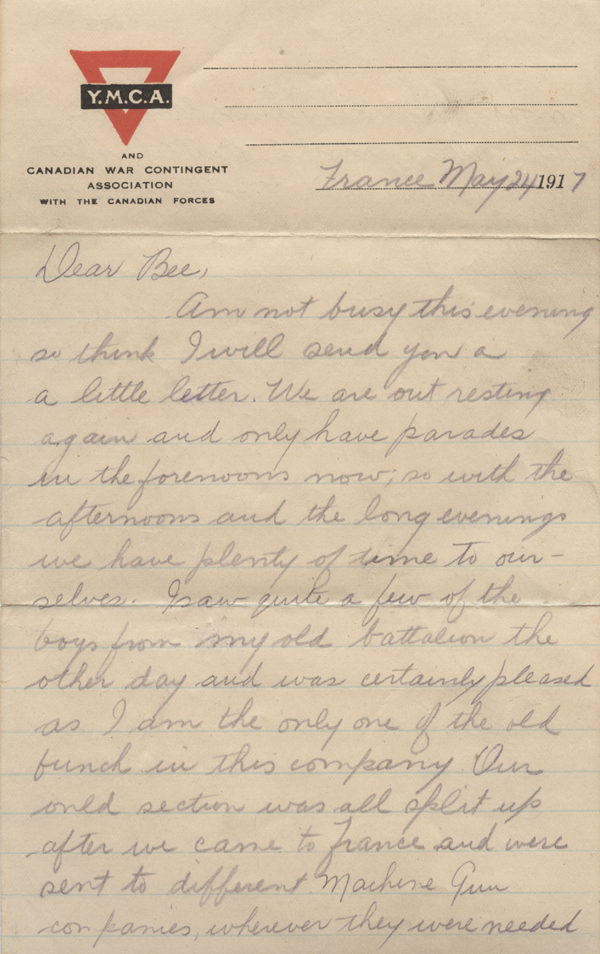 Y.M.C.A.
AND
CANADIAN WAR CONTINGENT
ASSOCIATION
WITH THE CANADIAN FORCES
France May 24 1917
Dear Bee,
Am not busy this evening
so think I will send you a
a little letter. We are out resting
again and only have parades
in the forenoons now; so with the
afternoons and the long evenings
we have plenty of time to our-
selves. I saw quite a few of the
boys from my old battalion the
other day and was certainly pleased
as I am the only one of the old
bunch in this company Our
ould section was all split up
after we came to France and were
sent to different Machine Gun
companies, wherever they were needed